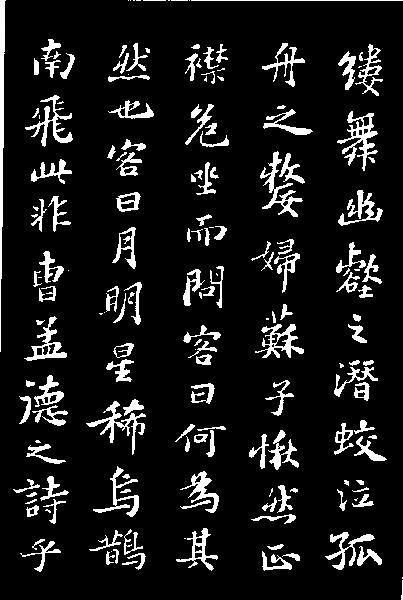 縷舞幽壑之潛蛟泣孤
舟之嫠婦蘇子愀然正
襟危坐而問客曰何為其
然也客曰月明星稀烏鵲
南飛此非曹孟德之詩乎